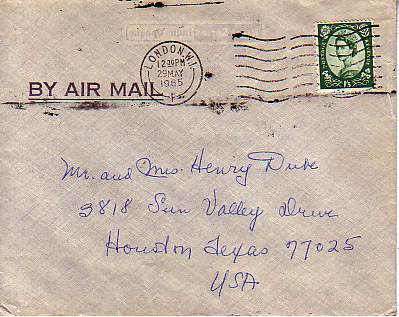 LONDON.W.1.
12 30PM
29 MAY
1965
1/3
BY AIR MAIL
Mr. and Mrs. Henry Dube
3818 Sun Valley Drive
Houston Texas 77025
USA